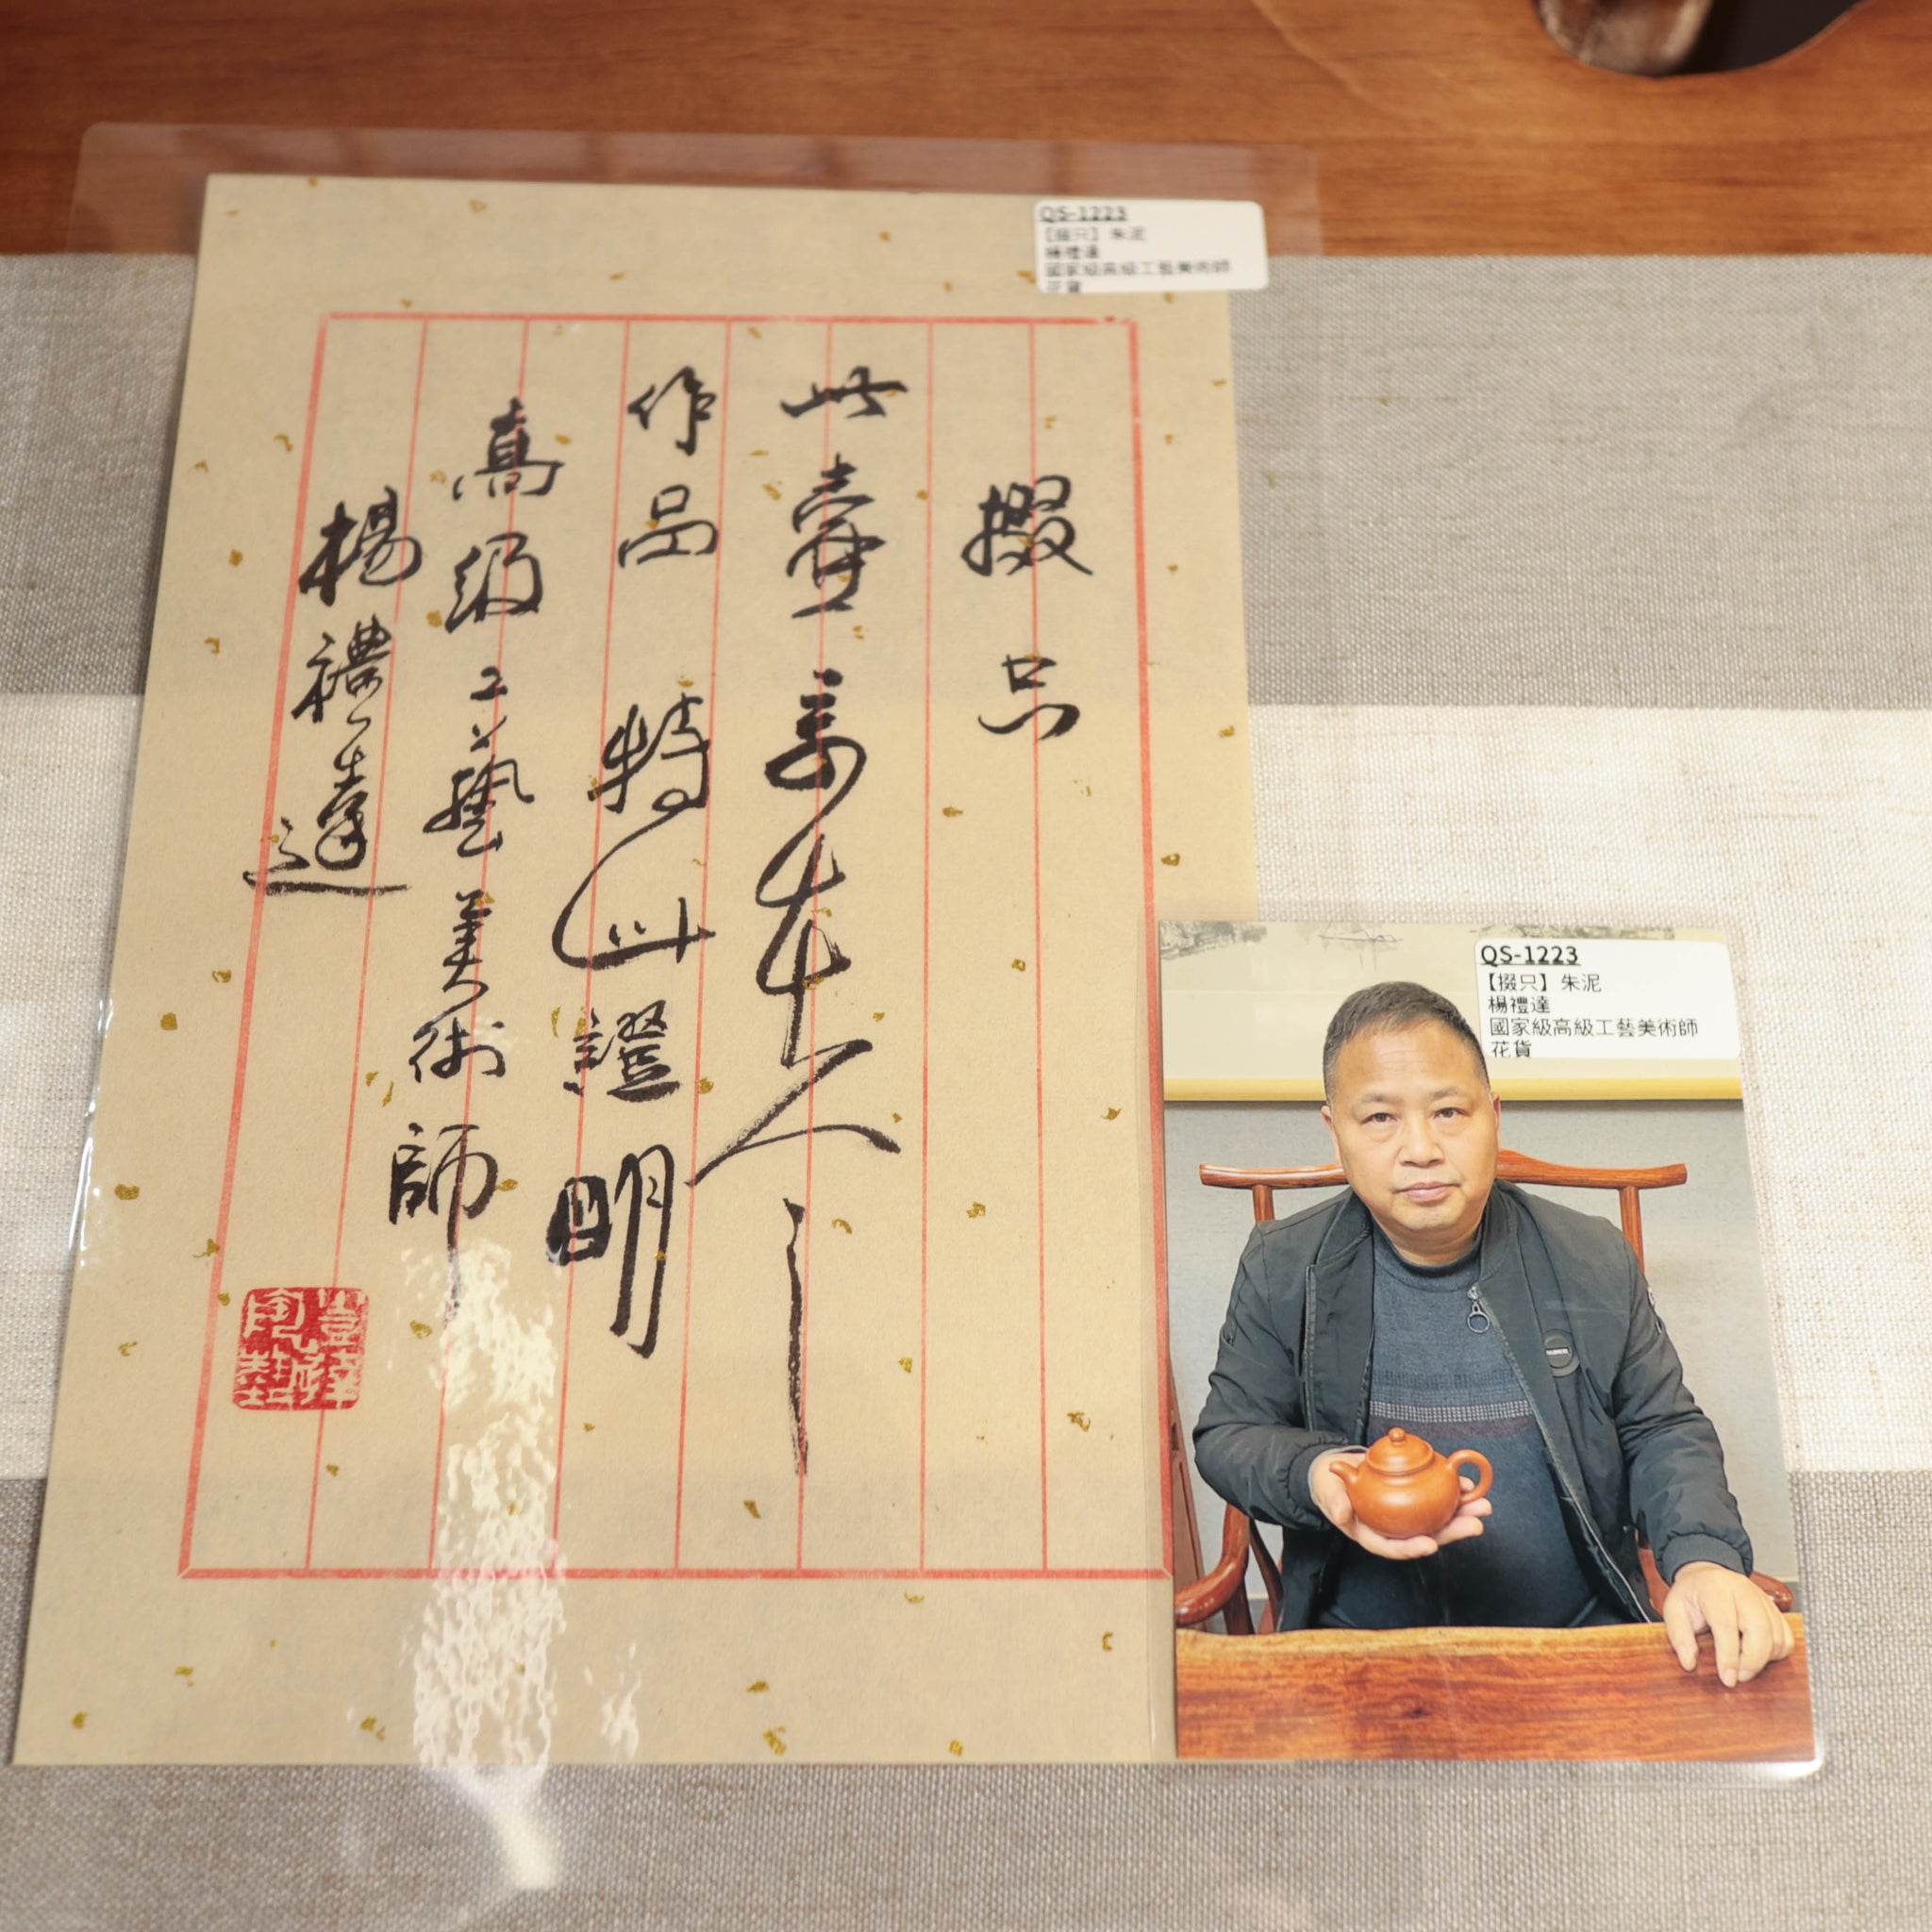 掇只
此壺爲本人之
作品特此證明
高級工藝美術師
楊禮達
QS-1223
【掇只】朱泥
楊禮達
國家級高級工藝美術師
花貨
QS-1223
【掇只】朱泥
楊禮達
國家級高級工藝美術師
花貨